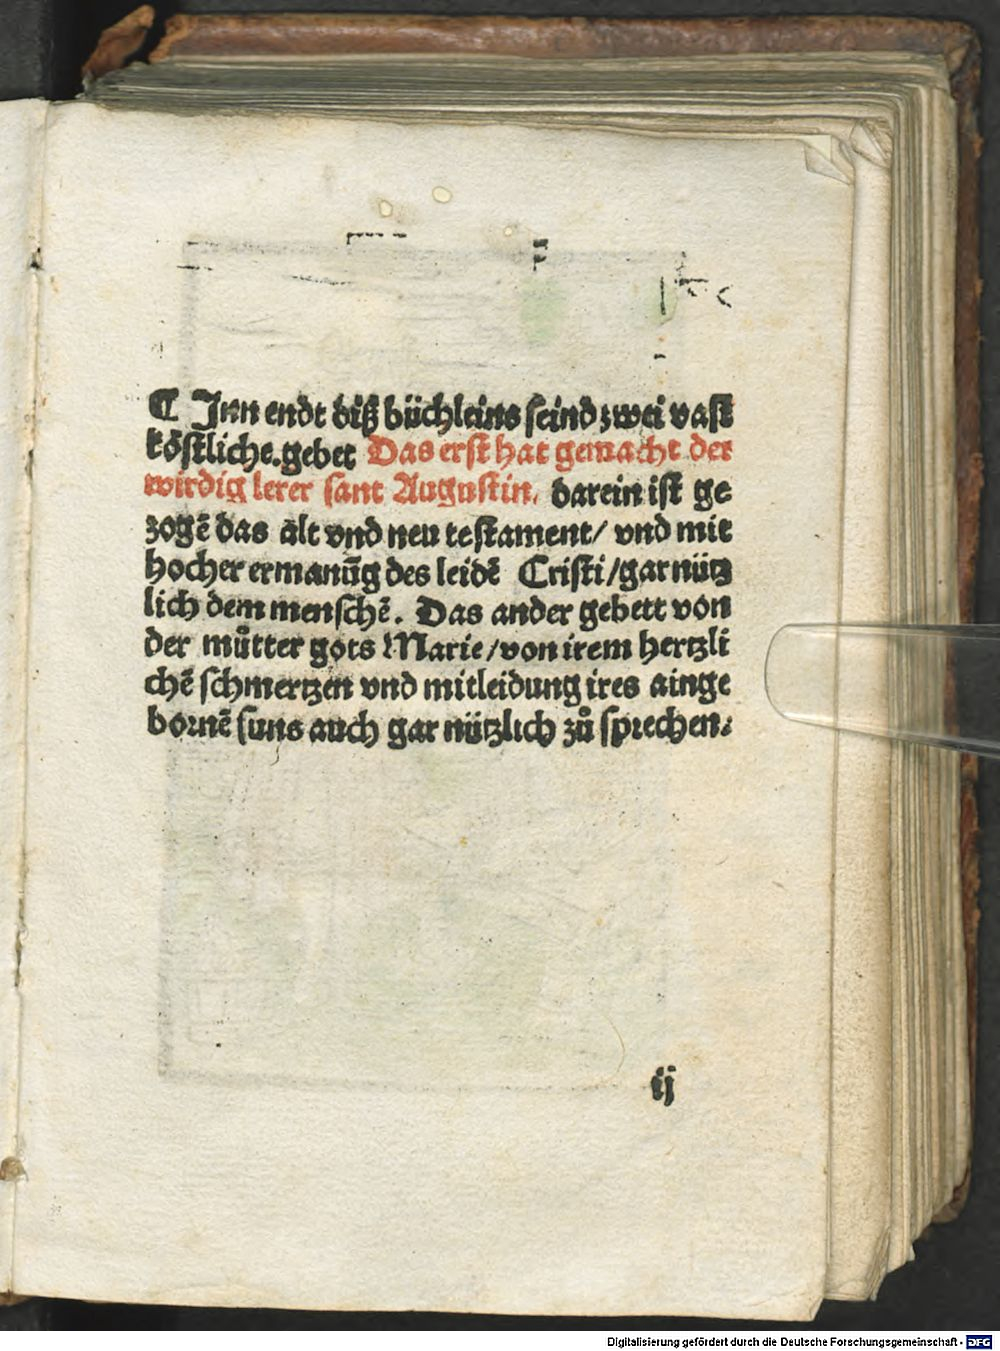 ¶ Inn endt diß büchleins seind zwei vast
köstliche.gebet Das erst hat gemacht der
wirdig lerer sant Augustin. darein ist ge
zogē das alt vnd neu testament/ vnd mit
hocher ermanūg des leidē Cristi/gar nütz
lich dem menschē. Das ander gebett von
der můtter gots Marie/von irem hertzli
chē schmertzen vnd mitleidung ires ainge
bornē suns auch gar nützlich zů sprechen.
ij
Digitalisierung gefördert durch die Deutsche Forschungsgemeinschaft - DFG